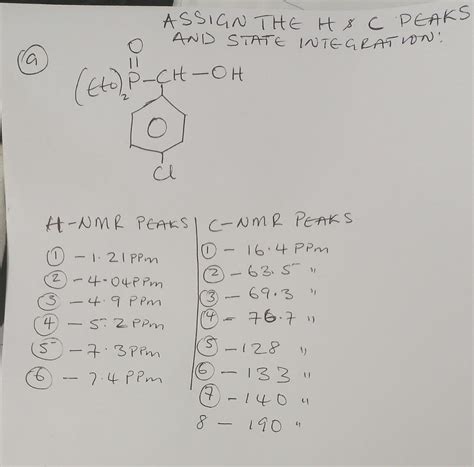 ASSIGN THE H & C PEAKS
AND STATE INTEGRATION:
(a)
O
(EtO)2 P-CH-OH
O
Cl
H-NMR PEAKS
① - 1.21 PPm
② - 4.04 PPm
③ - 4.9 PPm
④ - 5.2 PPm
⑤ - 7.3 PPm
⑥ - 7.4 PPm
C-NMR PEAKS
① - 16.4 PPm
② - 63.5 "
③ - 69.3 "
④ - 76.7 "
⑤ - 128 "
⑥ - 133 "
⑦ - 140 "
8 - 190 "